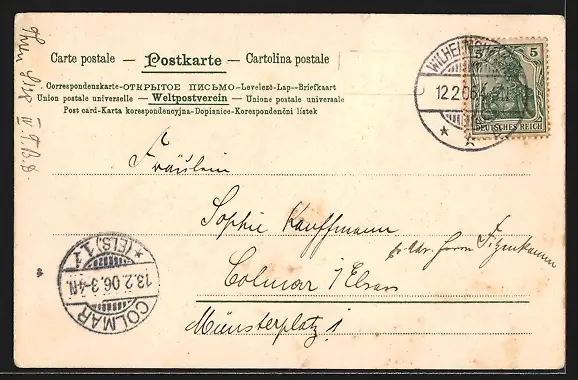 Carte postale — Postkarte — Cartolina postale
Correspondenskarte-ОТКРЫТОЕ ПИСЬМО-Levelező-Lap-Briefkaart
Union postale universelle — Weltpostverein — Unione postale universale
Post card-Karta korespondencyjna-Dopisnice-Korespondenční lístek
12.2.06
5
DEUTSCHES REICH
Fräulein
Sophie Kauffmann
Colmar i/Elsass
Münsterplatz 1
COLMAR
13.2.06.3-4N.
(ELS.) 1.